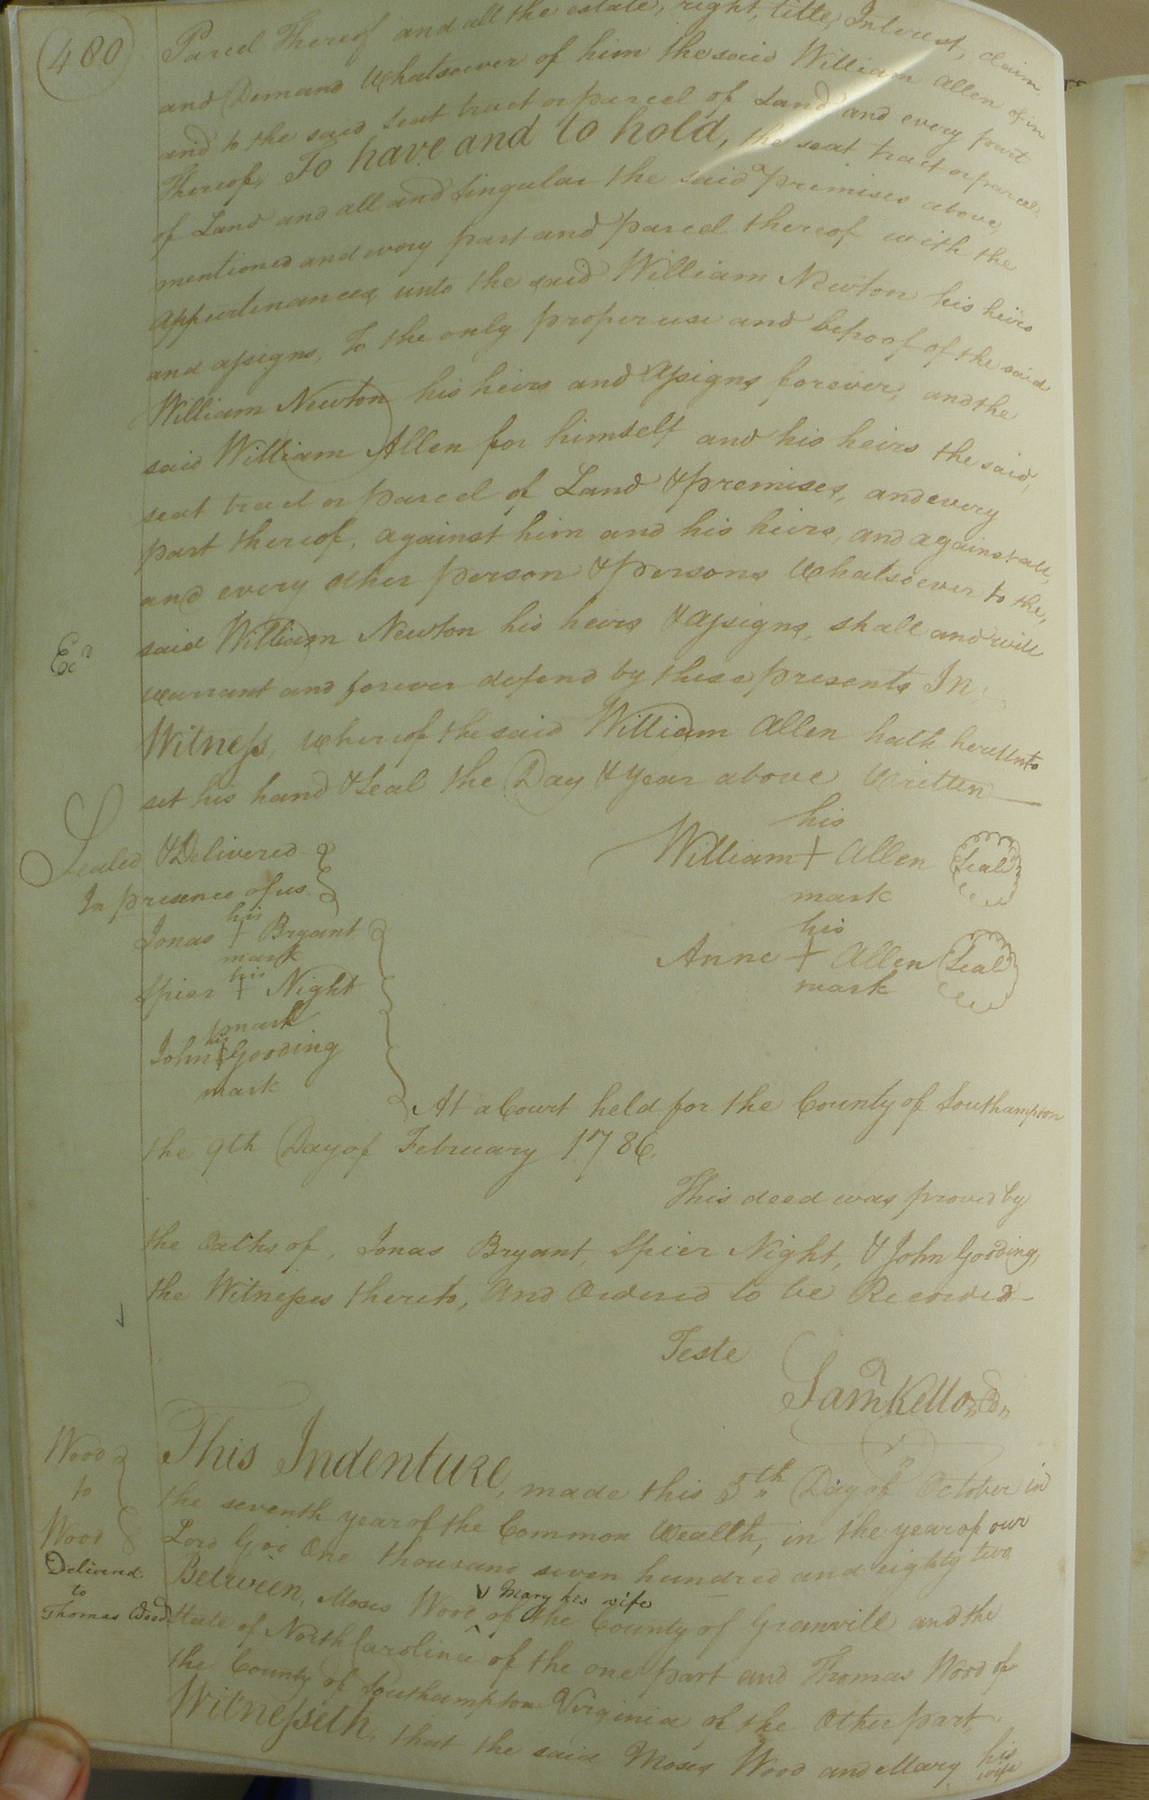 480
Parcel Thereof and all the estate, right, title, Interest, claim
and Demand Whatsoever of him the said William Allen of in
and to the said seat tract or parcel of Land and every part
Thereof, To have and to hold, the seat tract or parcel
of Land and all and Singular the said premises above,
mentioned and every part and parcel thereof with the
appurtenances, unto the said William Newton his heirs
and assigns, To the only proper use and behoof of the said
William Newton his heirs and assigns forever, and the
said William Allen for himself and his heirs the said,
seat tract or parcel of Land & premises, and every
part thereof, against him and his heirs, and against all,
and every other person & persons Whatsoever to the,
said William Newton his heirs & assigns, shall and will
warrant and forever defend by these presents In
Witness, whereof the said William Allen hath hereunto
set his hand & Seal the Day & Year above Written
Sealed & Delivered
In presence of us
his
Jonas + Bryant
mark
his
Spier + Night
mark
his
John + Gooding
mark
his
William + Allen Seal
mark
his
Anne + Allen Seal
mark
At a Court held for the County of Southampton
the 9th Day of February 1786.
This deed was proved by
the Oaths of, Jonas Bryant, Spier Night, & John Gooding,
the Witnesses thereto, And Ordered to be Recorded
Teste
Saml Kello
Wood
to
Wood
Delivered
to
Thomas Wood
This Indenture, made this 5th Day of October in
the seventh year of the Common Wealth, in the year of our
Lord God One thousand seven hundred and eighty two
Between, Moses Wood & Mary his wife of the County of Granvill and the
State of North Carolina of the one part and Thomas Wood of
the County of Southampton Virginia of the Other part
Witnesseth, that the said Moses Wood and Mary his
wife